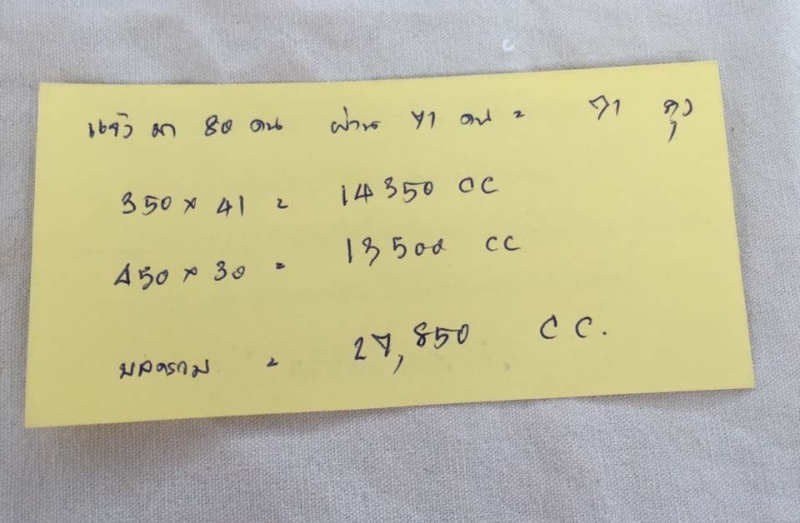 แจ้ง มา 80 คน ผ่าน 71 คน = 71 ถุง
350 x 41 = 14350 CC
450 x 30 = 13500 CC
ยอดรวม = 27,850 CC.